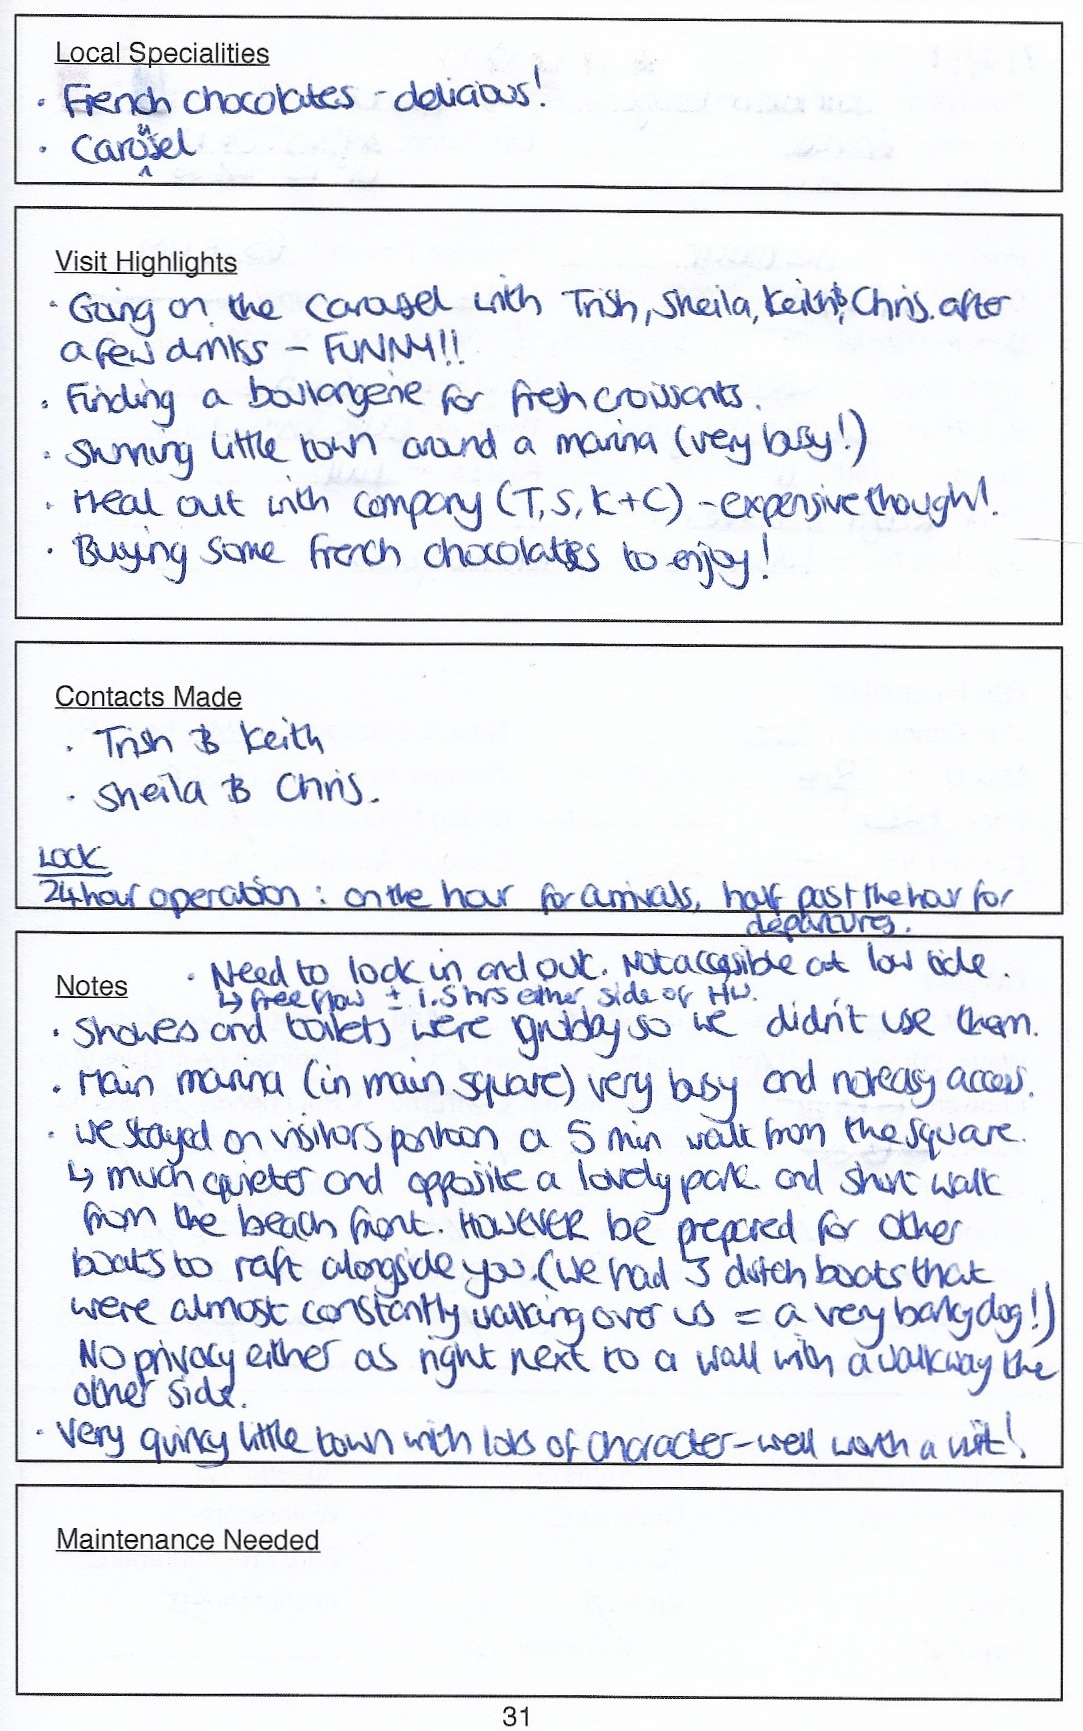 Local Specialities
· French chocolates - delicious!
· Carousel
Visit Highlights
· Going on the Carousel with Trish, Sheila, Keith & Chris. after
a few drinks - FUNNY!!
· Finding a boulangerie for fresh croissants.
· Stunning little town around a marina (very busy!)
· Meal out with company (T, S, K + C) - expensive though!
· Buying some french chocolates to enjoy!
Contacts Made
· Trish & Keith
· Sheila & Chris.
Lock
24 hour operation : on the hour for arrivals, half past the hour for
departures.
Notes · Need to lock in and out. Not accessible at low tide.
↳ free flow ± 1.5 hrs either side of HW.
· Showers and toilets were grubby so we didn't use them.
· Main marina (in main square) very busy and not easy access.
· We stayed on visitors pontoon a 5 min walk from the square.
↳ much quieter and opposite a lovely park and short walk
from the beach front. HOWEVER be prepared for other
boats to raft alongside you. (We had 3 dutch boats that
were almost constantly walking over us = a very barky dog!)
No privacy either as right next to a wall with a walkway the
other side.
· Very quirky little town with lots of character - well worth a visit!
Maintenance Needed
31